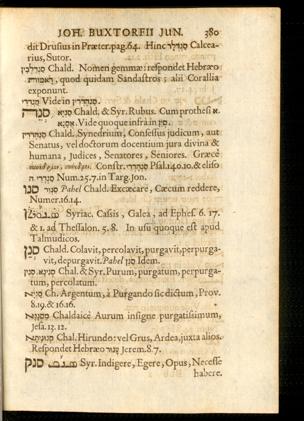 JOH. BUXTORFII JUN. 380
dit Drusius in Præter.pag.64. Hinc סַנְדְּלָר Calcea-
rius, Sutor.
סַנְדַּלְכִין Chald. Nomen gemmæ: respondet Hebræo
quod quidam Sandastros; alii Corallia
exponunt.
Vide in
Chald. & Syr. Rubus. Cum prosthesi א
אסניא Vide quoque infra in סנן.
Chald. Synedrium, Consessus judicum, aut
Senatus, vel doctorum docentium jura divina &
humana, Judices, Senatores, Seniores. Græcè
Constr. סנהדרי Psal.140.10. & eliso
ה סנדרי Num.25.7. in Targ.Jon.
סנו סנור Pahel Chald. Excæcare, Cæcum reddere,
Numer.16.14.
Syriac. Cassis, Galea, ad Ephes. 6. 17.
& 1. ad Thessalon. 5. 8. In usu quoque est apud
Talmudicos.
סנן Chald. Colavit, percolavit, purgavit, perpurga-
vit, depurgavit. Pahel סנן Idem.
סנין, סנינא Chal. & Syr. Purum, purgatum, perpurga-
tum, percolatum.
סנינא Ch. Argentum, à Purgando sic dictum, Prov.
8.19. & 16.16.
Chaldaicè Aurum insigne purgatissimum,
Jesa. 13. 12.
סנוניתא Chal. Hirundo: vel Grus, Ardea, juxta alios.
Respondet Hebræo עגור Jerem.8.7.
סנק Syr. Indigere, Egere, Opus, Necesse
habere.